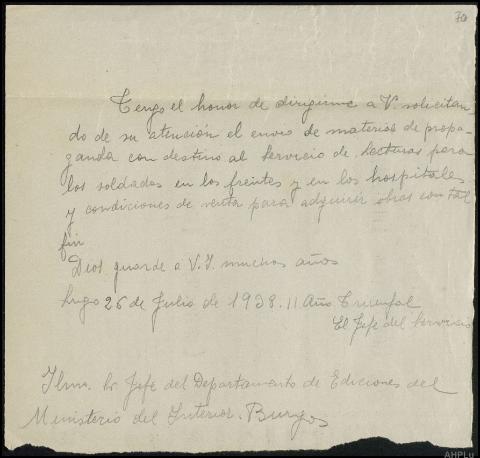 70
Tengo el honor de dirigirme a V. solicitan-
do de su atención el envío de material de propa-
ganda con destino al Servicio de Lecturas para
los soldados en los frentes y en los hospitales
y condiciones de venta para adquirir obras con tal
fin
Dios guarde a V.I. muchos años
Lugo 26 de Julio de 1938. II Año Triunfal
El Jefe del Servicio
Ilmo. Sr Jefe del Departamento de Ediciones del
Ministerio del Interior. Burgos
AHPLu